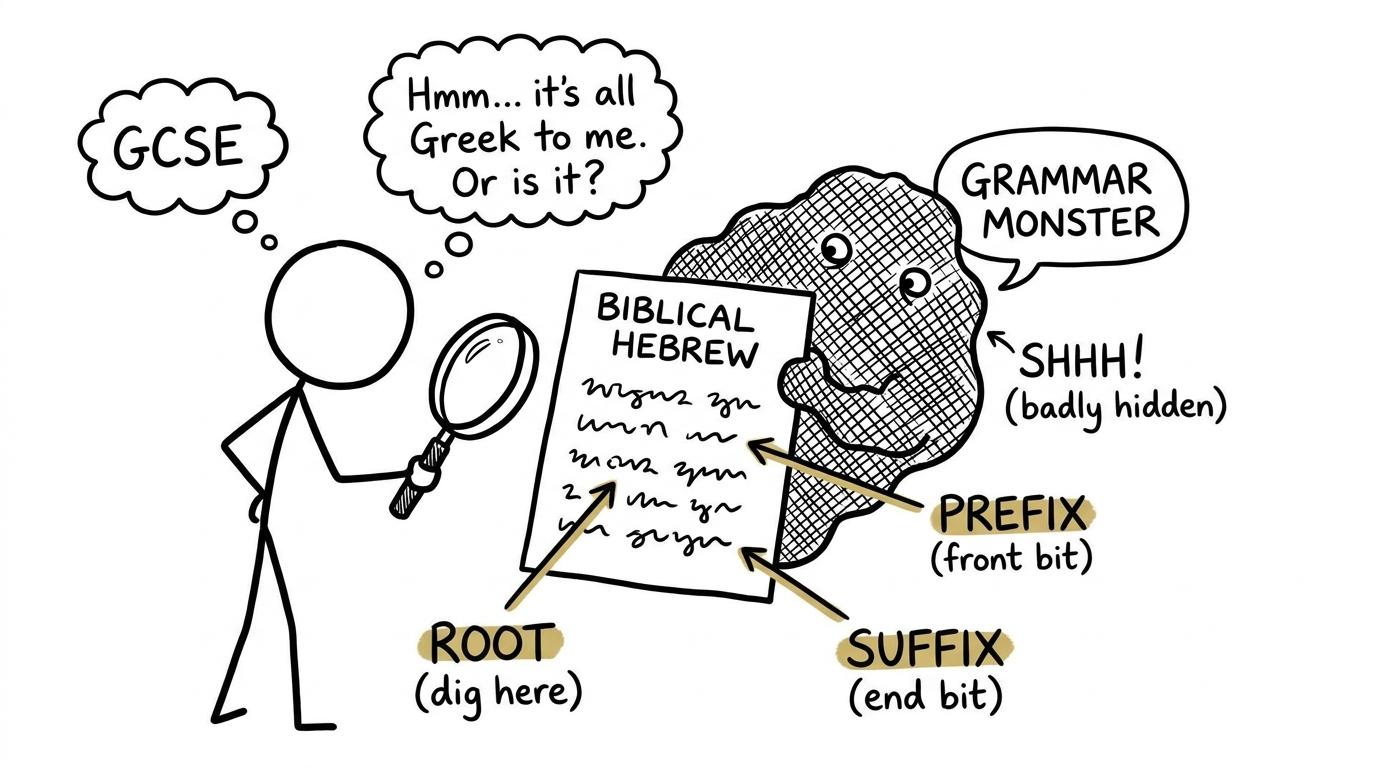 GCSE
Hmm... it's all
Greek to me.
Or is it?
GRAMMAR
MONSTER
BIBLICAL
HEBREW
SHHH!
(badly hidden)
PREFIX
(front bit)
ROOT
(dig here)
SUFFIX
(end bit)